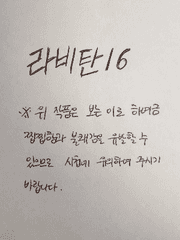 라비탄16
※ 위 작품은 보는 이로 하여금
찝찝함과 불쾌감을 유발할 수
있으므로 시청에 유의하여 주시기
바랍니다.